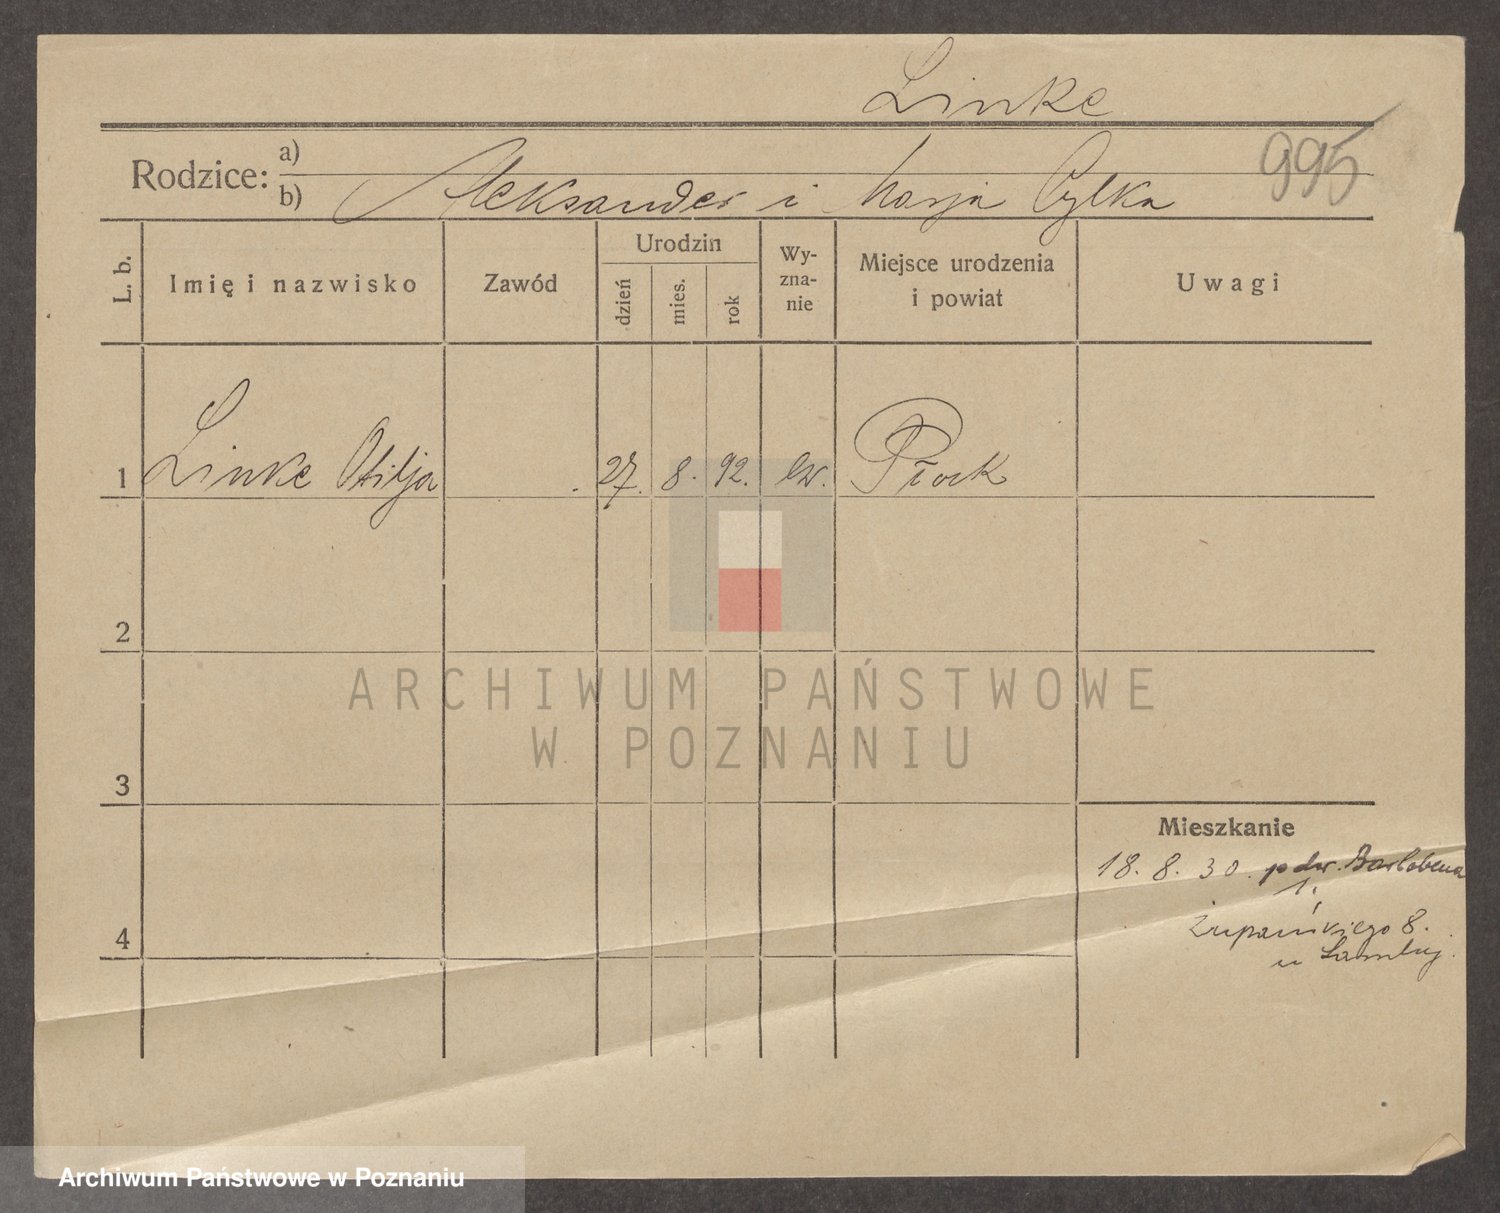 Linke
995
Rodzice: a)
b) Aleksander i Marja Cylka
L. b. Imię i nazwisko Zawód Urodzin dzień mies. rok Wy-zna-nie Miejsce urodzenia i powiat Uwagi
1 Linke Otilja 27. 8. 92. Ew. Płock
2
ARCHIWUM PAŃSTWOWE
W POZNANIU
3
Mieszkanie
18. 8. 30.
1.
4
Żupańskiego 8.
u
Archiwum Państwowe w Poznaniu